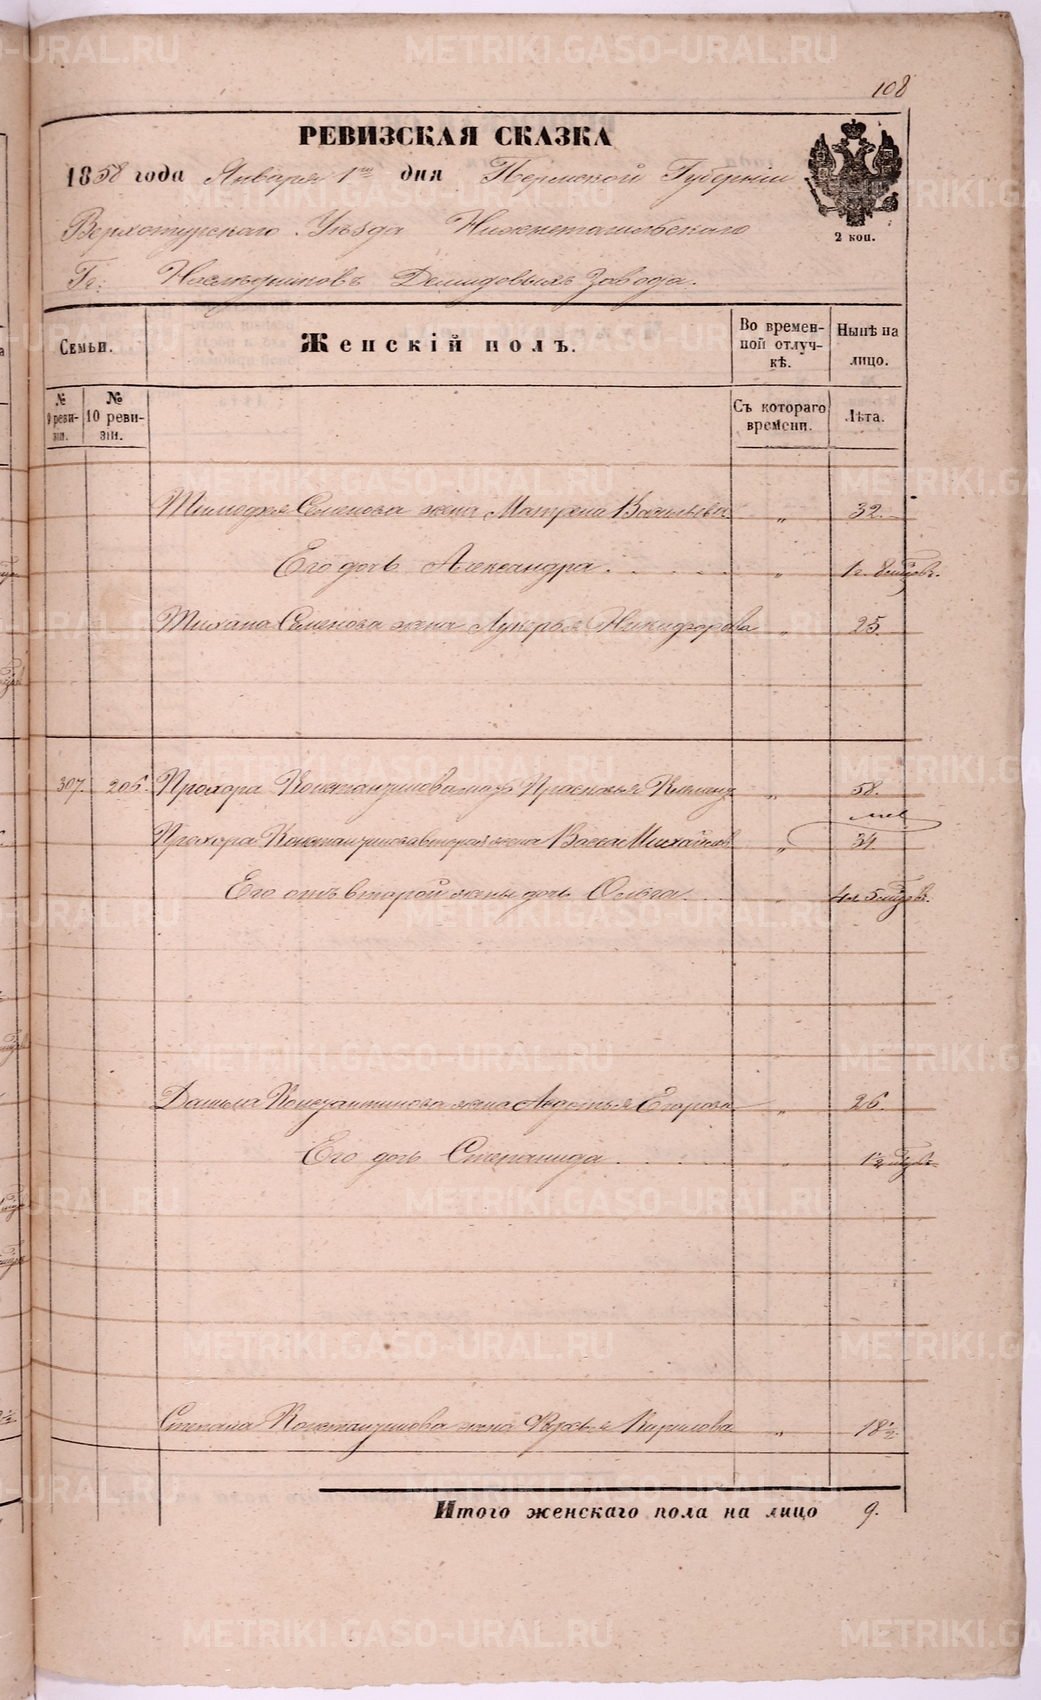 108
РЕВИЗСКАЯ СКАЗКА
1858 года Января 1го дня Пермской Губерніи
Верхотурскаго Уѣзда Нижнетагильскаго
Гг. Наслѣдниковъ Демидовыхъ завода.
2 коп.
Семьи.
Женскій полъ.
Во временной отлучкѣ.
Нынѣ на лицо.
№ 9 ревизіи.
№ 10 ревизіи.
Съ котораго времени.
Лѣта.
Тимофея Семенова жена Матрена Васильева „ 32.
Его дочь Александра „ 1 г. 8 мѣсяцовъ.
Михаила Семенова жена Лукерья Никифорова „ 25.
307. 206. Прохора Константинова мать Прасковья „ 58.
Прохора Константинова вторая жена Михайлова „ 34.
Его отъ второй жены дочь Ольга „ 4 л. 5 мѣсяцовъ.
Данила Константинова жена Авдотья Егорова „ 26.
Его дочь Степанида „ 1 1/2 мѣсяц.
Степана Константинова жена Кирилова „ 18 1/2.
Итого женскаго пола на лицо 9.
METRIKI.GASO-URAL.RU